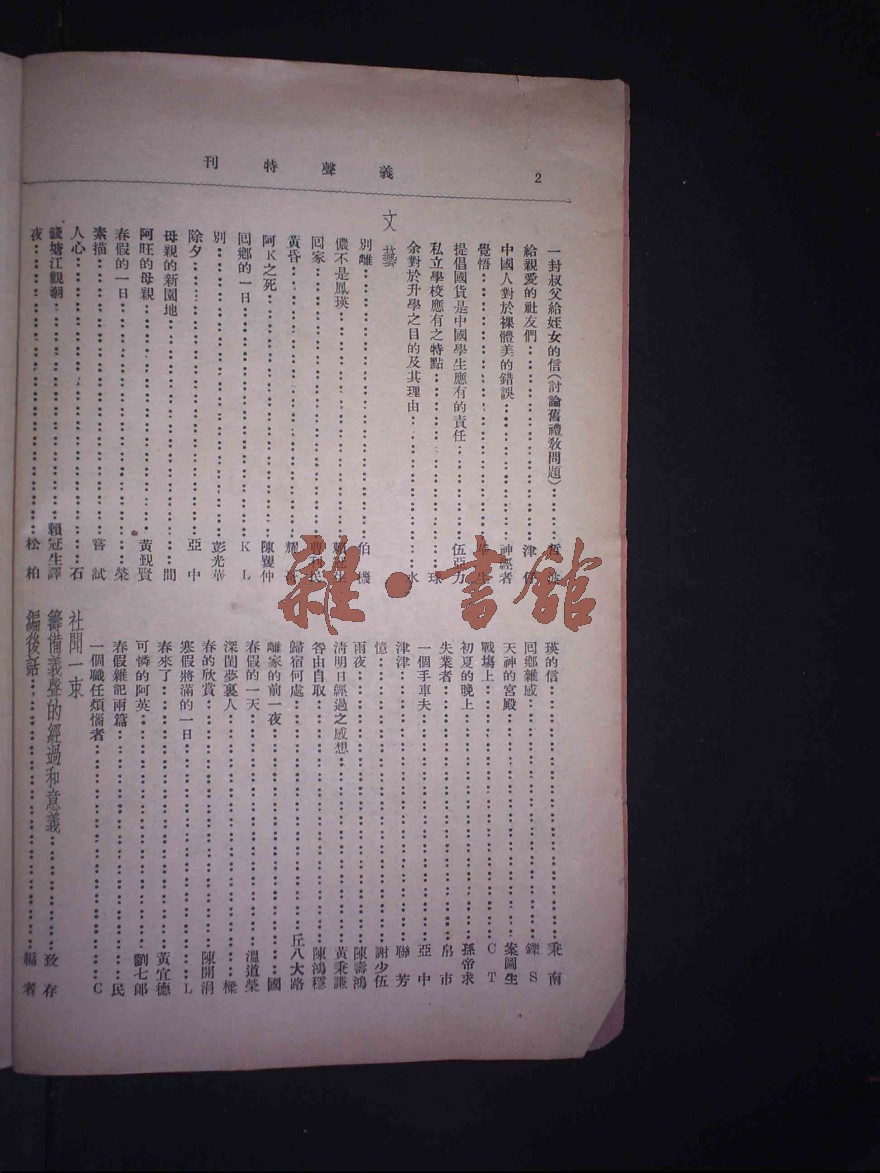 義聲特刊
2
一封叔父給姪女的信（討論舊禮教問題）
給親愛的社友們 津
中國人對於裸體美的錯誤 神經者
覺悟 生
提倡國貨是中國學生應有的責任 伍亞力
私立學校應有之特點 球
余對於升學之目的及其理由 水
文藝
別離 伯機
儂不是鳳瑛
囘家
黃昏 耀
阿K之死 陳仲
囘鄉的一日 K L
別 彭光華
除夕 亞中
母親的新園地 間
阿旺的母親 黃賢
春假的一日 榮
素描 嘗試
人心 石
錢塘江觀潮 賴冠生譯
夜 松柏
瑛的信 秉南
囘鄉雜感 鑠S
天神的宮殿 案圖生
戰場上 C T
初夏的晚上 孫帝求
失業者 帛市
一個手車夫 亞中
津津 聯芳
憶 謝少伍
雨夜 陳壽鴻
清明日經過之感想 黃秉謙
咎由自取 陳鴻穩
歸宿何處 丘八大路
離家的前一夜 國
春假的一天 溫道榮
深閨夢裏人 樑
春的欣賞 陳開涓
寒假將滿的一日 L
春來了 黃宜德
可憐的阿英 劉七郎
春假雜記兩篇 民
一個職任煩惱者 C
社聞一束
籌備義聲的經過和意義 致存
編後話 編者
雜·書館